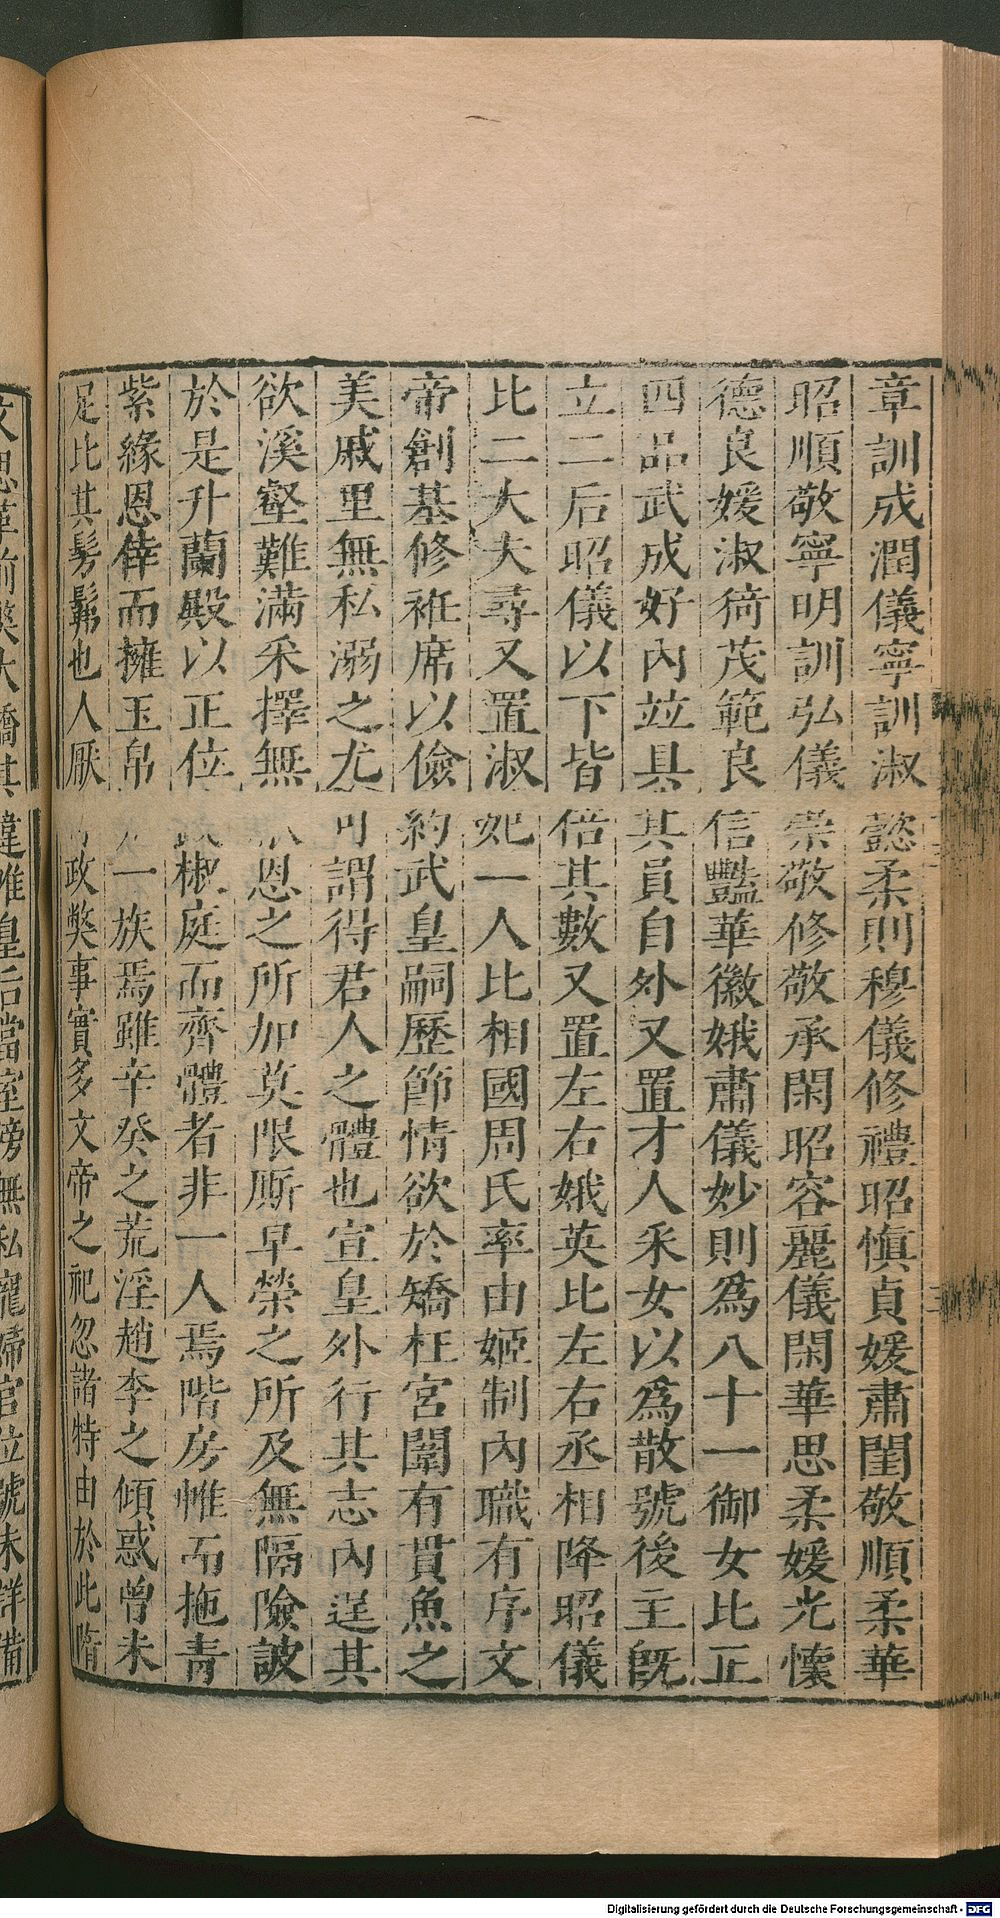 章訓成潤儀寧訓淑懿柔則穆儀修禮昭慎貞媛肅閨敬順柔華
昭順敬寧明訓弘儀崇敬修敬承閑昭容麗儀閑華思柔媛光懷
德良媛淑猗茂範良信豔華徽娥肅儀妙則為八十一御女比正
四品武成好內竝具其員自外又置才人采女以為散號後主既
立二后昭儀以下皆倍其數又置左右娥英比左右丞相降昭儀
比二大夫尋又置淑妃一人比相國周氏率由姬制內職有序文
帝創基修袵席以儉約武皇嗣歷節情欲於矯枉宮闈有貫魚之
美戚里無私溺之尤可謂得君人之體也宣皇外行其志內逞其
欲溪壑難滿采擇無恩之所加莫限厮早榮之所及無隔險詖
於是升蘭殿以正位椒庭而齊體者非一人焉階房帷而拖青
紫緣恩倖而擁玉帛一族焉雖辛癸之荒淫趙李之傾惑曾未
足比其髣髴也人厭政弊事實多文帝之祀忽諸特由於此隋
文思革前弊大矯其違唯皇后當室傍無私寵婦官位號未詳備
Digitalisierung gefördert durch die Deutsche Forschungsgemeinschaft - DFG